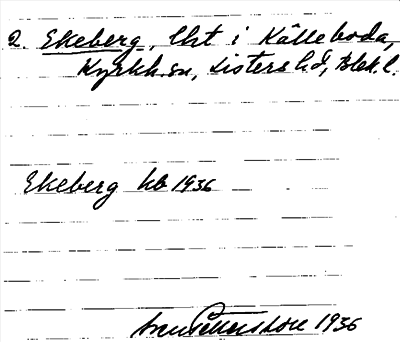 2. Ekeberg, lht i Kålleboda,
Kyrkh. sn, Listers hd, Blek. l.
Ekeberg kb 1936
1936